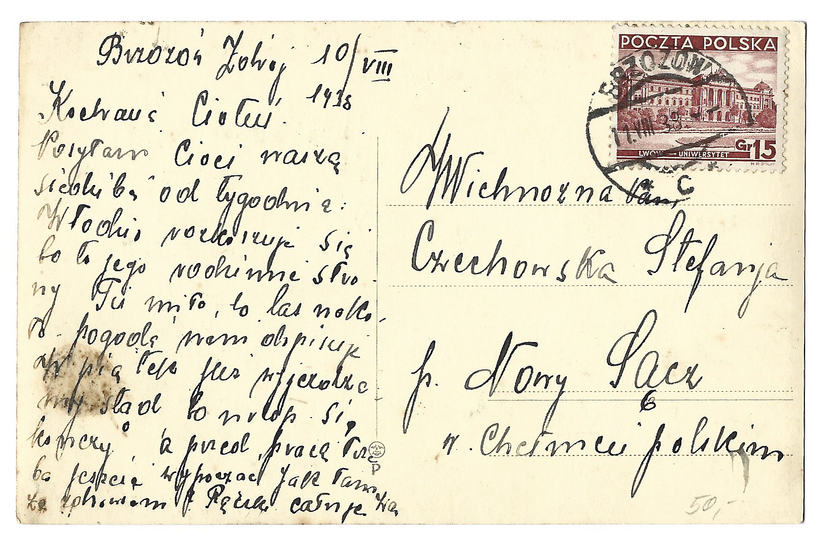 Brzozów Zdrój 10/VIII
1938
Kochana Ciotuś.
Posyłam Cioci naszą
siedzibę od tygodnia.
Włodziu rozkoszuje się
bo to jego rodzinne stro-
ny Tu miło, bo las naoko-
ło pogoda nam dopisuje
W piątek już wyjeżdża-
my stąd bo urlop się
kończy, a przed pracą trze
ba jeszcze wypocząć Jak tam
zdrowiem? Rączki całuje
POCZTA POLSKA
BRZOZÓW
11.VIII 38
LWÓW UNIWERSYTET
Gr 15
C
Wielmożna Pani
Czechowska Stefanja
p. Nowy Sącz
w Chełmcu polskim
P
50,-